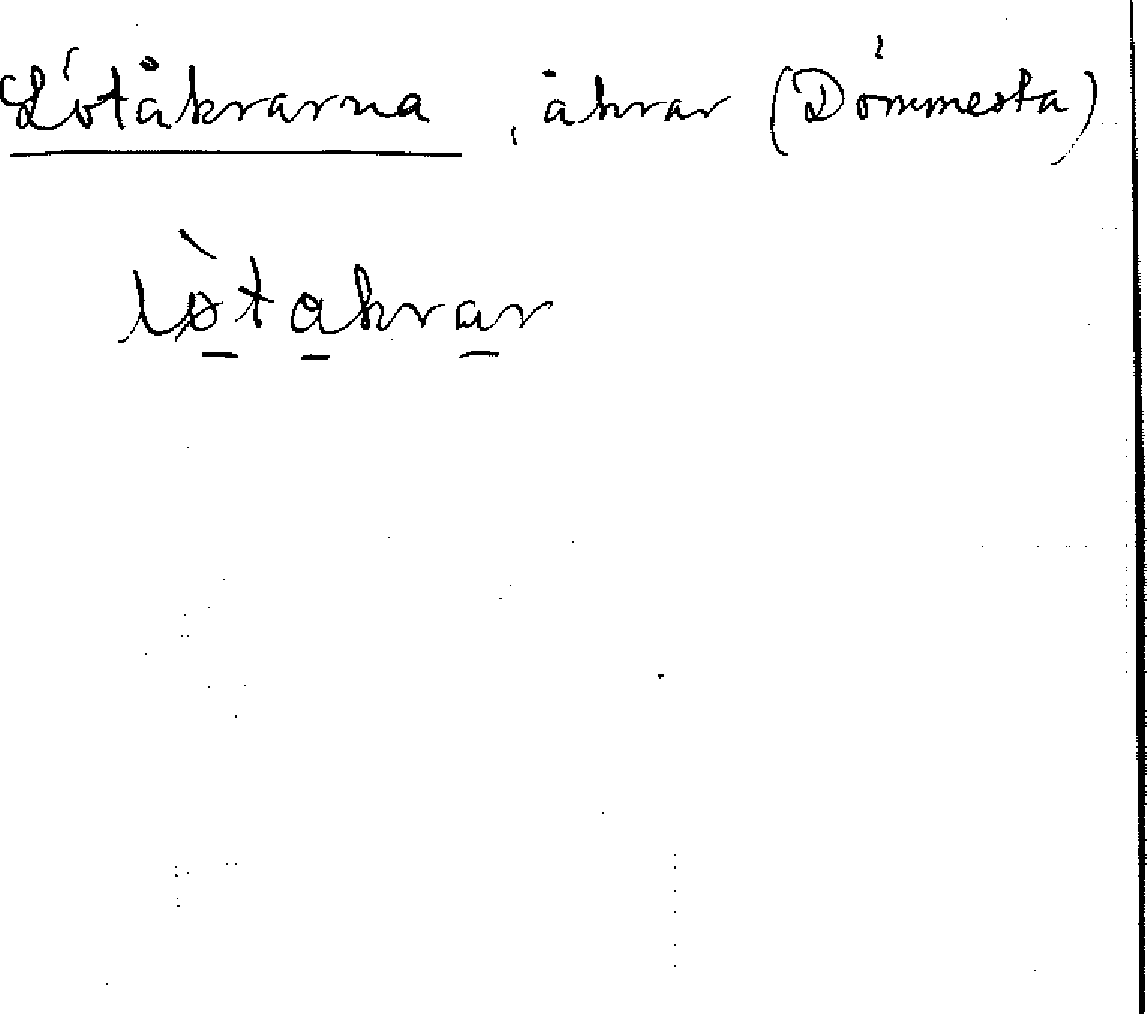 Lötåkrarna, åkrar (Dömmesta)
lø̀takrar